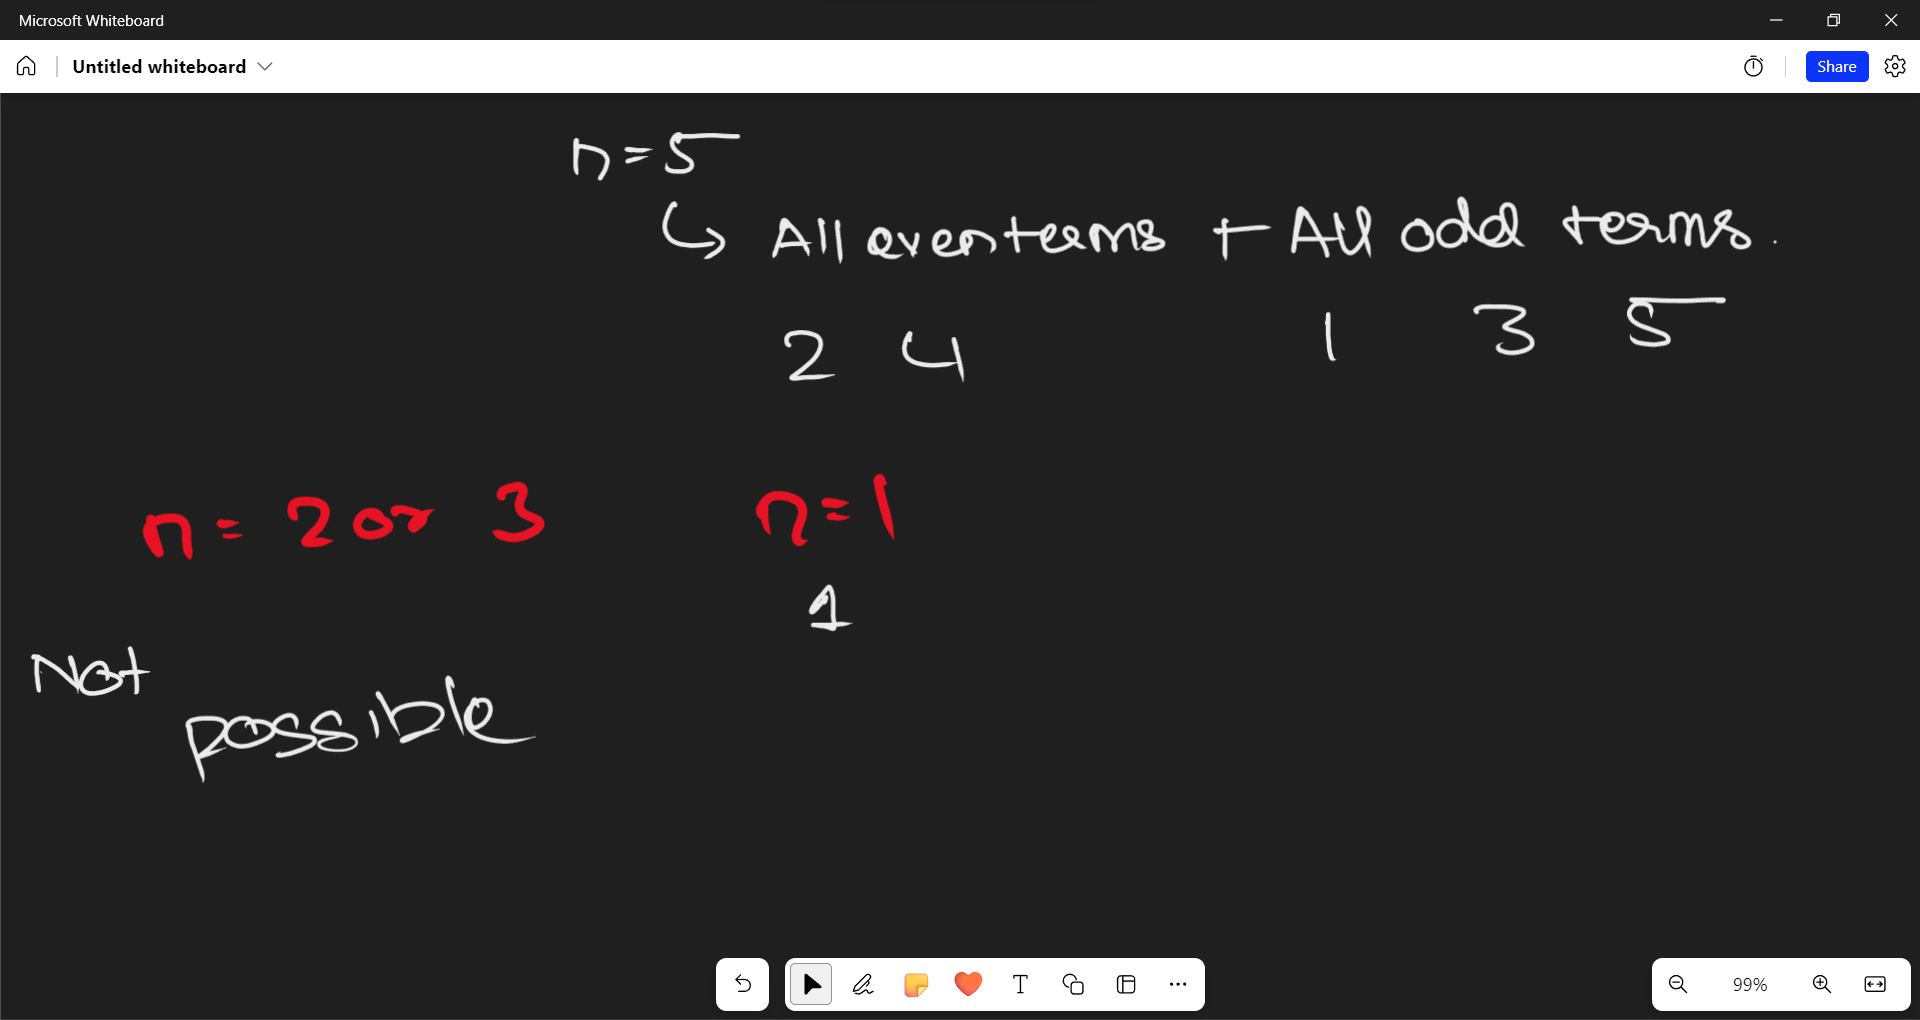 Microsoft Whiteboard
Untitled whiteboard
Share
n = 5
All even terms + All odd terms.
2 4 1 3 5
n = 2 or 3 n = 1
1
Not
possible
T
99%